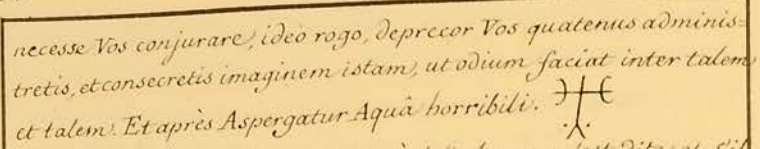 necesse Vos conjurare, ideò rogo, deprecor Vos quatenus adminis=
tretis, et consecretis imaginem istam, ut odium faciat inter talem
et talem. Et après Aspergatur Aquâ horribili.